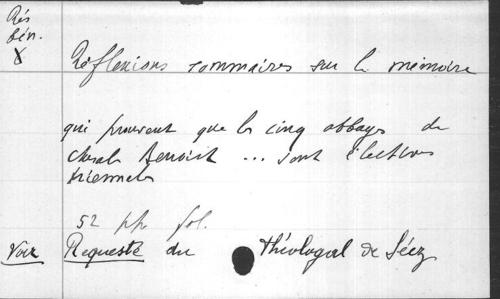 Rés
bén.
X
Réflexions sommaires sur le mémoire
qui prouvent que les cinq abbayes de
Chezal Benoist ... sont électives
triennales
52 pp fol.
Voir Requeste du théologal de Séez